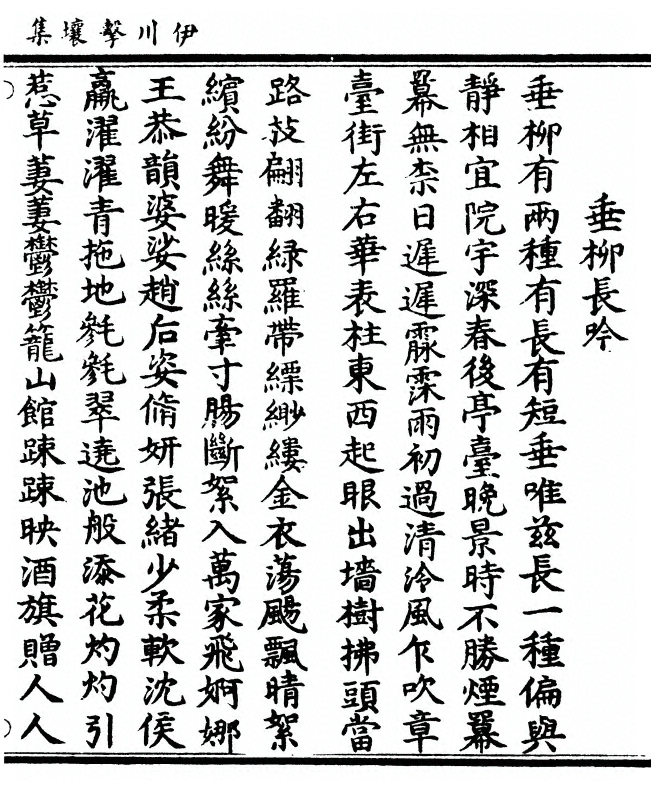 伊川擊壤集
垂柳長吟
垂柳有兩種有長有短垂唯茲長一種偏與
靜相宜院宇深春後亭臺晚景時不勝煙羃
羃無柰日遲遲霡霂雨初過清泠風乍吹章
臺街左右華表柱東西起眼出墻樹拂頭當
路茇翩翻緑羅帶縹緲縷金衣蕩颺飄晴絮
繽紛舞暖絲絲牽寸腸斷絮入萬家飛婀娜
王恭韻婆娑趙后姿脩妍張緒少柔軟沈侯
羸濯濯青拖地毿毿翠遶池般添花灼灼引
惹草萋萋鬱鬱籠山館踈踈映酒旗贈人人